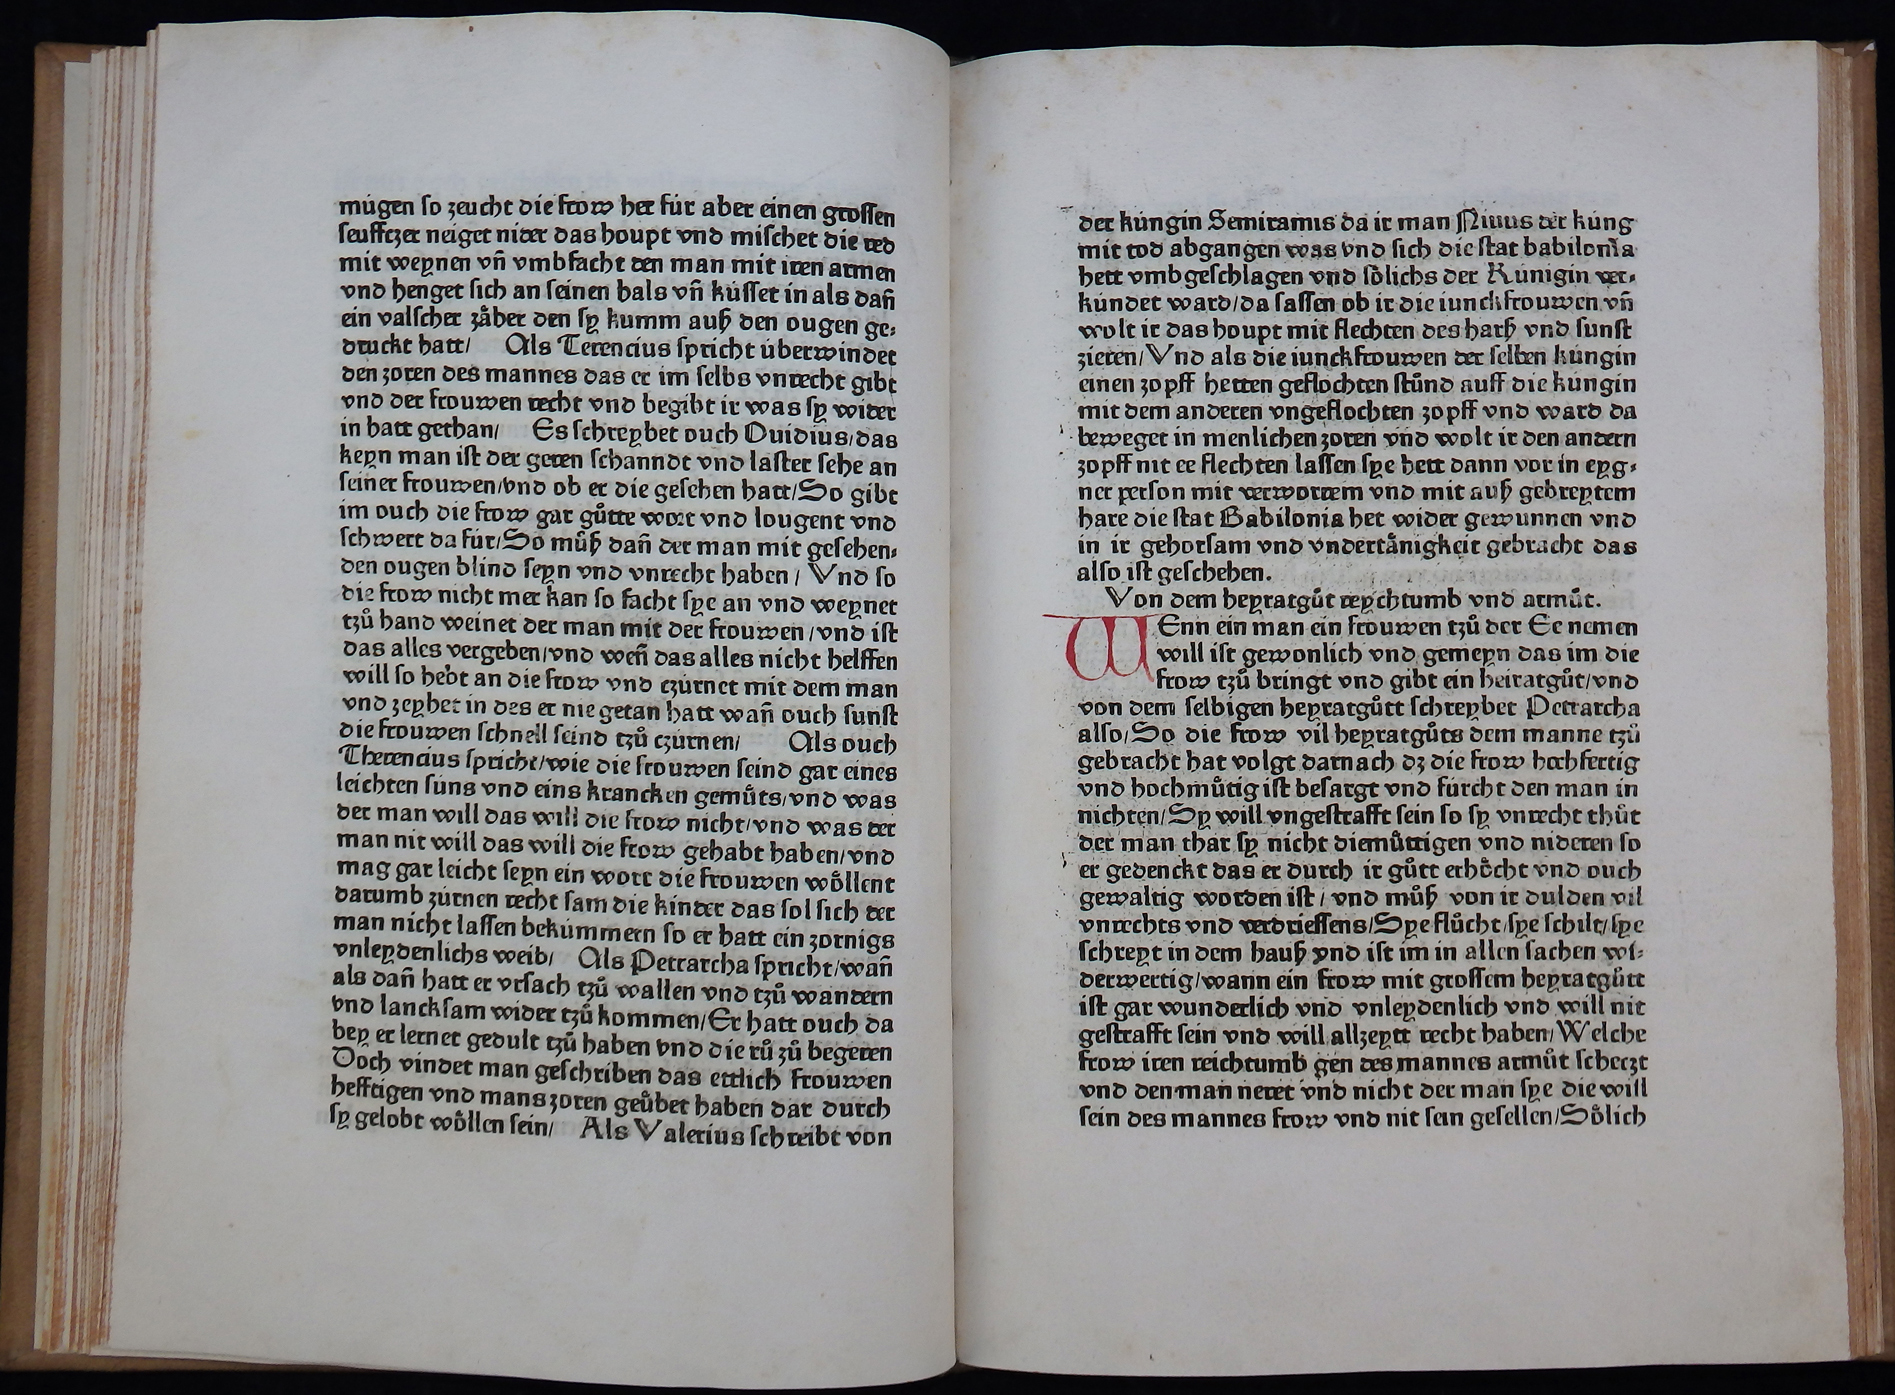 mügen so zeucht die frow her für aber einen grossen
seuffczer neiget nider das houpt vnd mischet die red
mit weynen vn̄ vmbfacht den man mit iren armen
vnd henget sich an seinen hals vn̄ küsset in als dan̄
ein valscher zåher den sy kumm auß den ougen ge⸗
druckt hatt/ Als Terencius spricht überwindet
den zoren des mannes das er im selbs vnrecht gibt
vnd der frouwen recht vnd begibt ir was sy wider
in hatt gethan/ Es schreybet ouch Ouidius/das
keyn man ist der geren schanndt vnd laster sehe an
seiner frouwen/vnd ob er die gesehen hatt/So gibt
im ouch die frow gar gůtte wort vnd lougent vnd
schwert da für/So můß dan̄ der man mit gesehen⸗
den ougen blind seyn vnd vnrecht haben/ Vnd so
die frow nicht mer kan so facht sye an vnd weynet
tzů hand weinet der man mit der frouwen/vnd ist
das alles vergeben/vnd wen̄ das alles nicht helffen
will so hebt an die frow vnd czürnet mit dem man
vnd zeyhet in des er nie getan hatt wan̄ ouch sunst
die frouwen schnell seind tzů czürnen/ Als ouch
Therencius spricht/wie die frouwen seind gar eines
leichten süns vnd eins krancken gemůts/vnd was
der man will das will die frow nicht/vnd was der
man nit will das will die frow gehabt haben/vnd
mag gar leicht seyn ein wort die frouwen wőllent
darumb zürnen recht sam die kinder das sol sich der
man nicht lassen bekümmern so er hatt ein zornigs
vnleydenlichs weib/ Als Petrarcha spricht/wan̄
als dan̄ hatt er vrsach tzů wallen vnd tzů wandern
vnd lancksam wider tzů kommen/Er hatt ouch da
bey er lernet gedult tzů haben vnd die rů zů begeren
Doch vindet man geschriben das ettlich frouwen
hefftigen vnd mans zoren geůbet haben dar durch
sy gelobt wőllen sein/ Als Valerius schreibt von
der küngin Semiramis da ir man Ninus der küng
mit tod abgangen was vnd sich die stat babilonia
hett vmbgeschlagen vnd sőlichs der Künigin ver⸗
kündet ward/da sassen ob ir die iunckfrouwen vn̄
wolt ir das houpt mit flechten des harß vnd sunst
zieren/Vnd als die iunckfrouwen der selben küngin
einen zopff hetten geflochten stůnd auff die küngin
mit dem anderen vngeflochten zopff vnd ward da
beweget in menlichen zoren vnd wolt ir den andern
zopff nit ee flechten lassen sye hett dann vor in eyg⸗
ner person mit verworrem vnd mit auß gebreytem
hare die stat Babilonia her wider gewunnen vnd
in ir gehorsam vnd vndertånigkeit gebracht das
also ist geschehen.
Von dem heyratgůt reychtumb vnd armůt.
WEnn ein man ein frouwen tzů der Ee nemen
will ist gewonlich vnd gemeyn das im die
frow tzů bringt vnd gibt ein heiratgůt/vnd
von dem selbigen heyratgůtt schreybet Petrarcha
also/So die frow vil heyratgůts dem manne tzů
gebracht hat volgt darnach dz die frow hochfertig
vnd hochmůtig ist besargt vnd fürcht den man in
nichten/Sy will vngestrafft sein so sy vnrecht thůt
der man thar sy nicht diemůttigen vnd nideren so
er gedenckt das er durch ir gůtt erhőcht vnd ouch
gewaltig worden ist/ vnd můß von ir dulden vil
vnrechts vnd verdriessens/Sye flůcht/sye schilt/sye
schreyt in dem hauß vnd ist im in allen sachen wi⸗
derwertig/wann ein frow mit grossem heyratgůtt
ist gar wunderlich vnd vnleydenlich vnd will nit
gestrafft sein vnd will allzeytt recht haben/Welche
frow iren reichtumb gen des mannes armůt scherzt
vnd den man neret vnd nicht der man sye die will
sein des mannes frow vnd nit sein gesellen/Sőlich